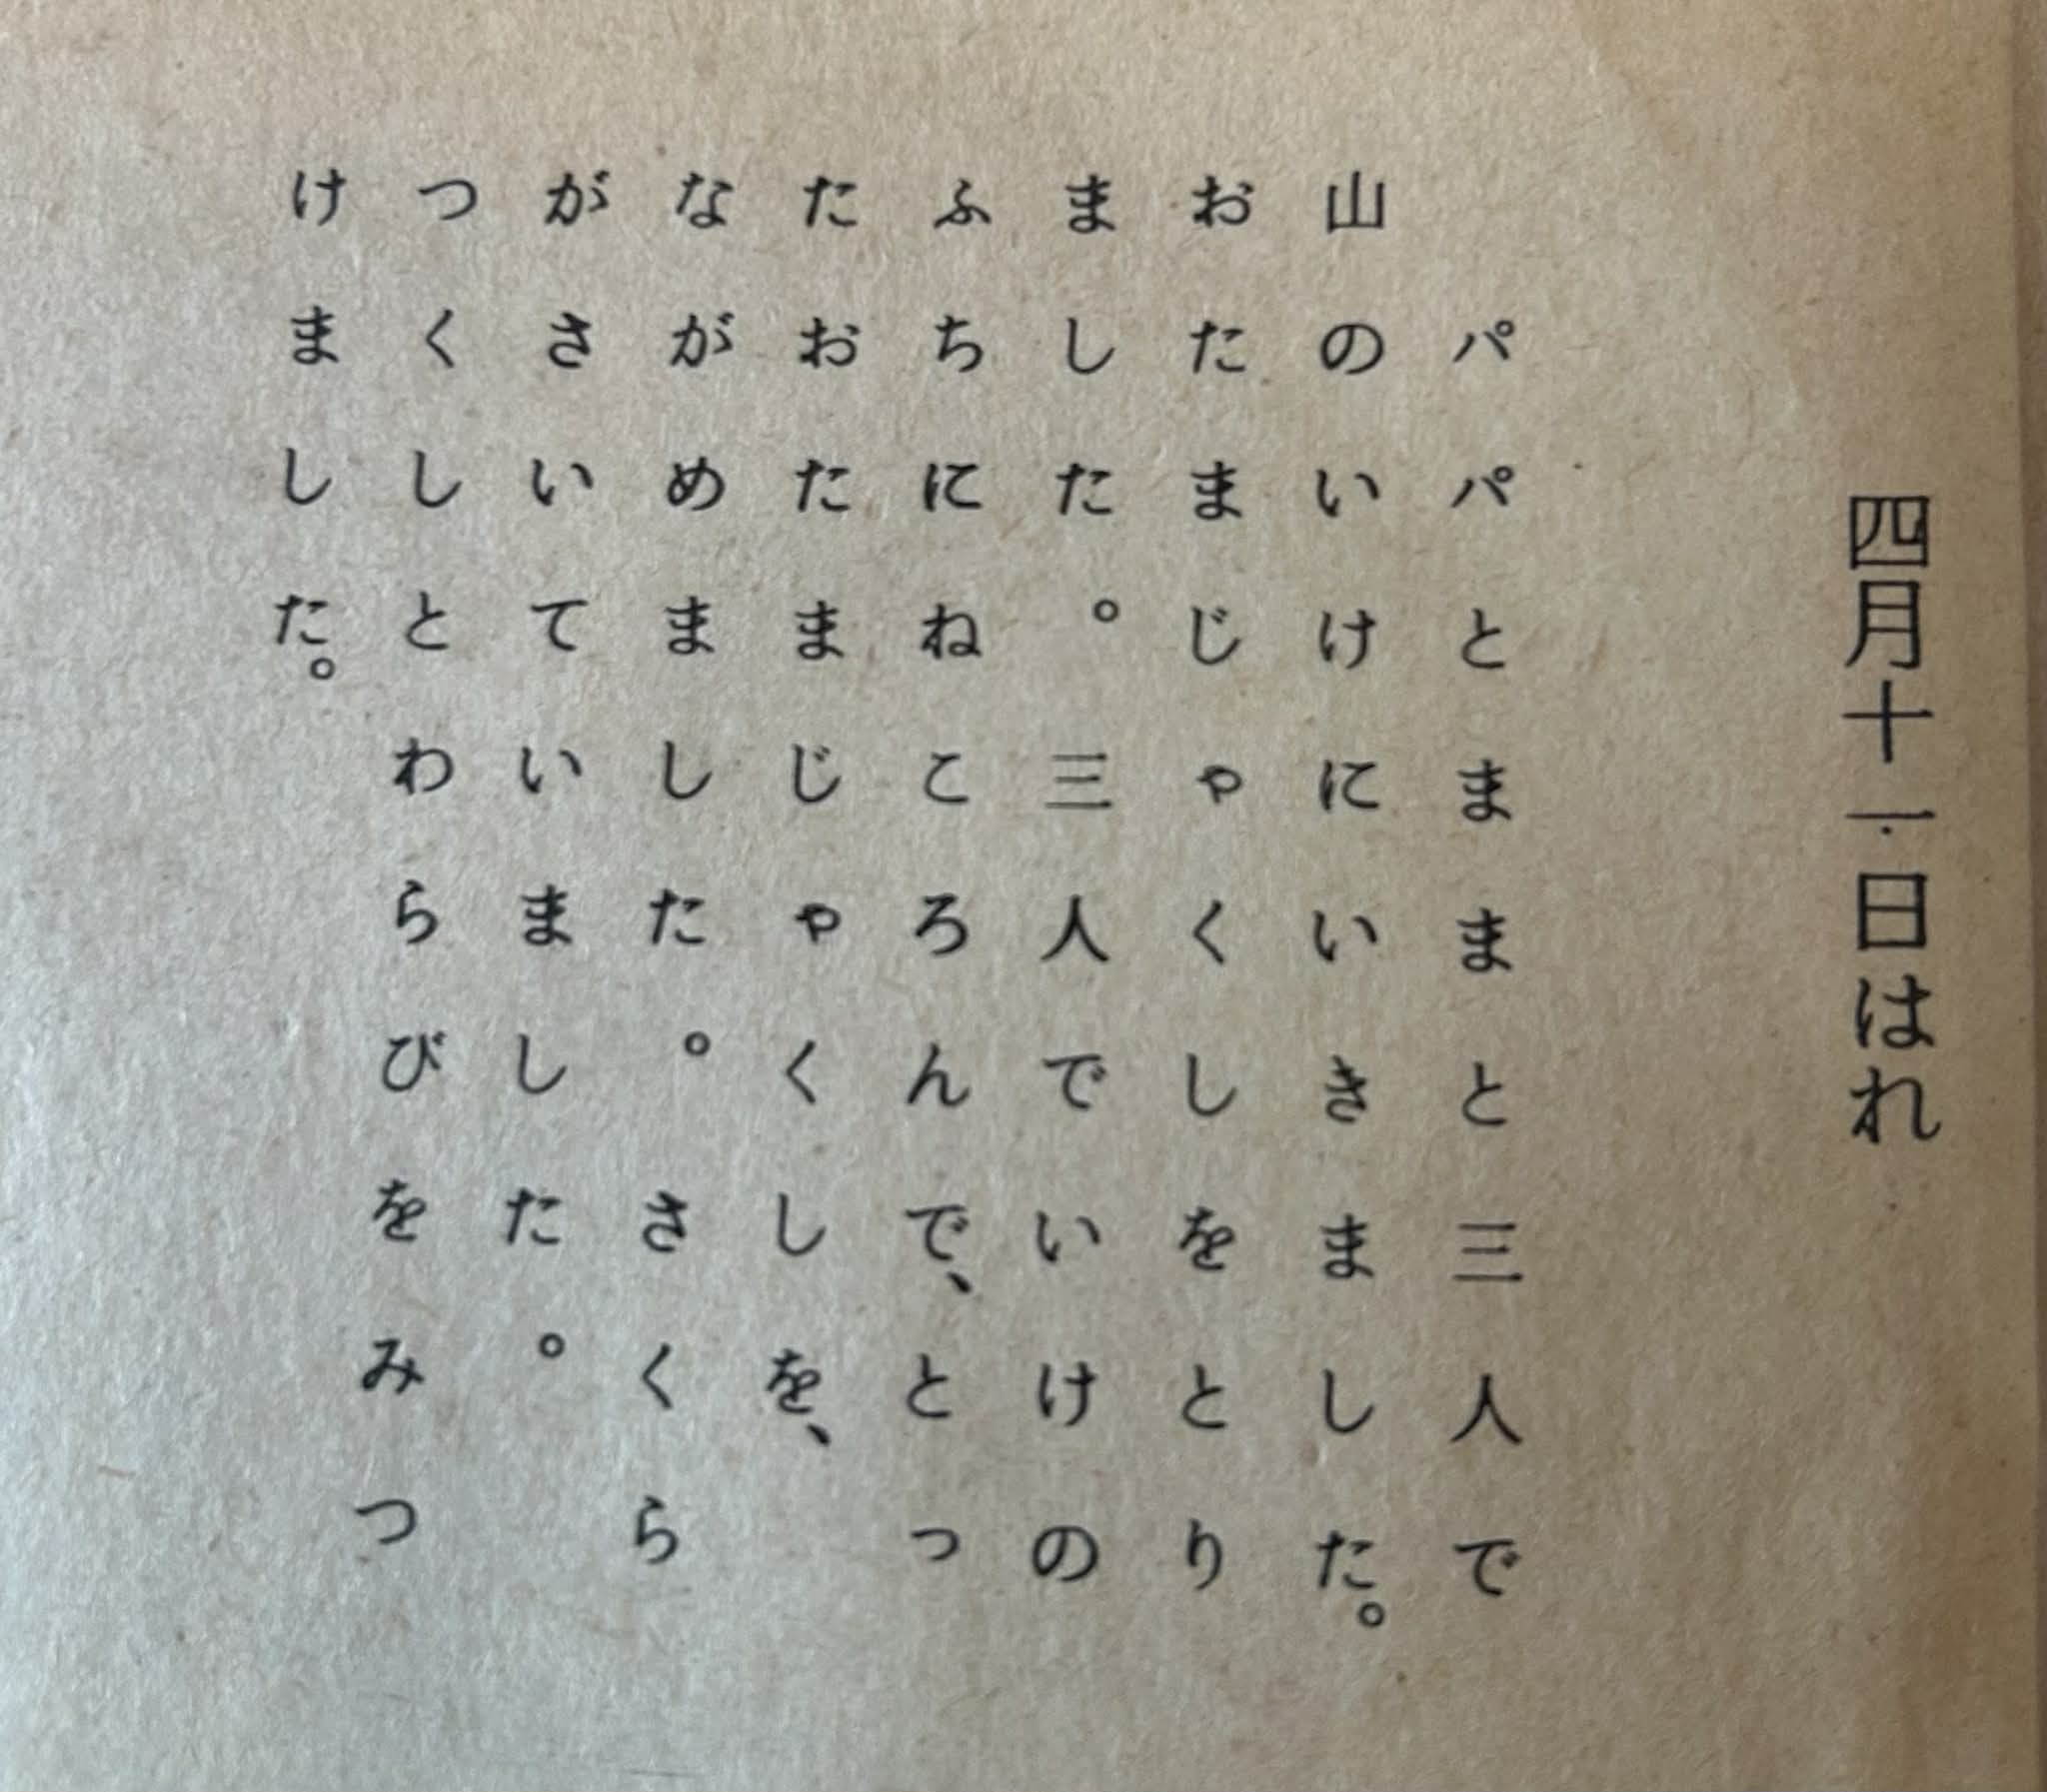 四月十一日はれ
パパとままと三人で
山のいけにいきました。
おたまじゃくしをとり
ました。三人でいけの
ふちにねころんで、とっ
たおたまじゃくしを、
ながめました。さくら
がさいていました。
つくしとわらびをみつ
けました。